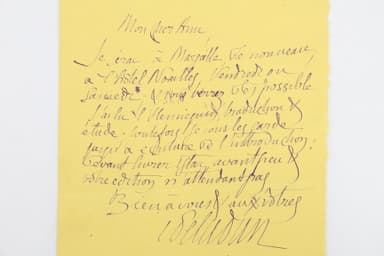 Mon cher Ami,
Je serai à Marseille de nouveau
à l'Hôtel Noailles, Vendredi ou
Samedi & vous verrai si possible
J'ai lu Hennequin, traduction &
étude. Toutefois je vous les garde
jusqu'à de l'introduction;
devant livrer avant peu &
votre édition n'attendant pas
Bien à vous & aux vôtres
Péladan